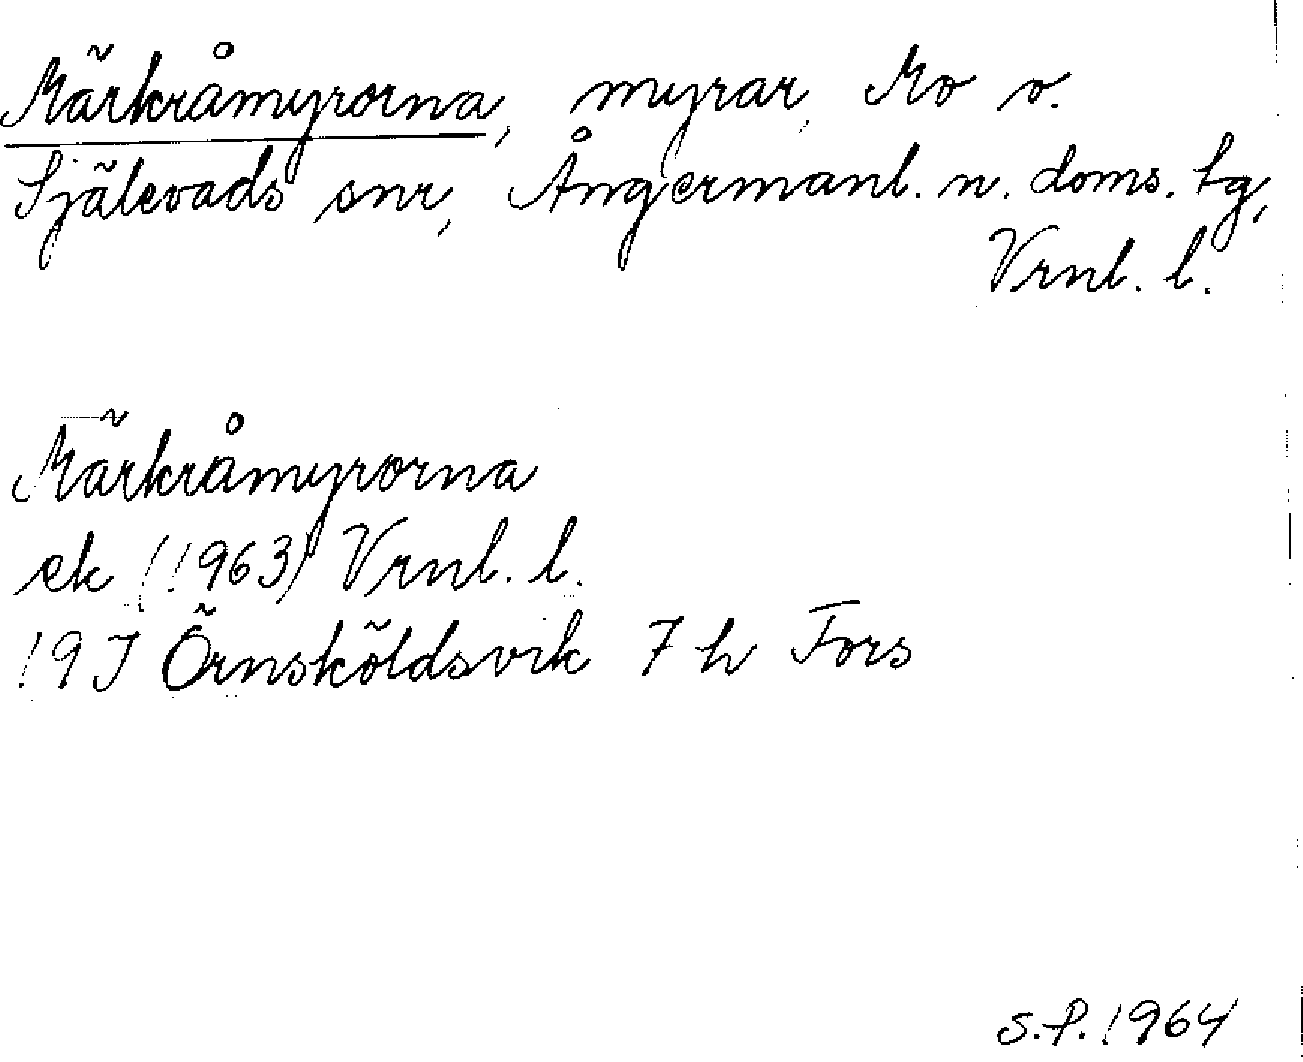 Märkråmyrorna, myrar, Mo o.
Själevads snr, Ångermanl. n. doms. tg,
Vrnl. l.
Märkråmyrorna
ek (1963) Vrnl. l.
19J Örnsköldsvik 7 h Fors
S.P. 1964